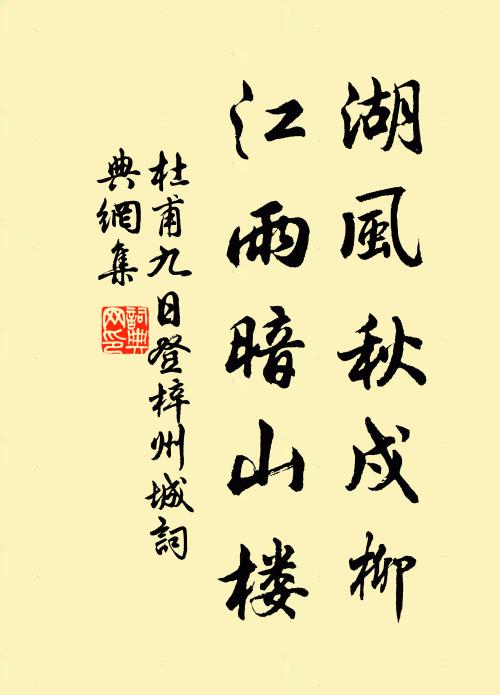 湖風秋戍柳
江雨暗山楼
杜甫九日登梓州城詞
典網集
詞典
网印